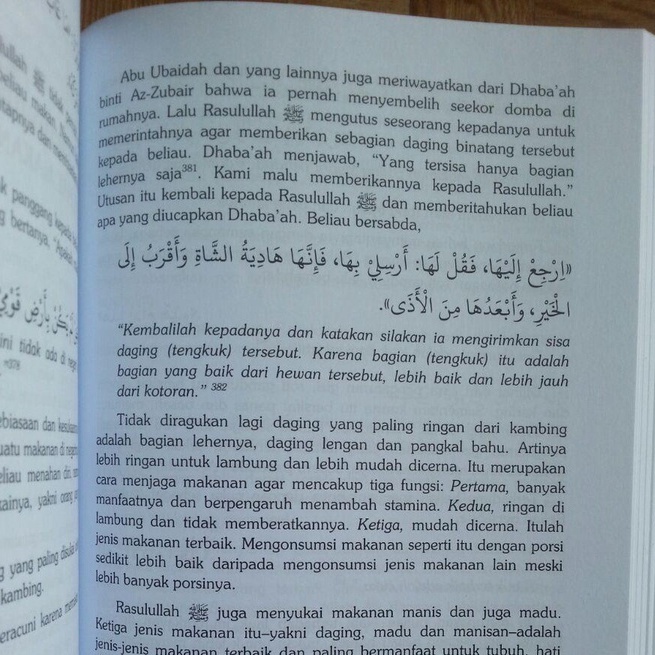 Abu Ubaidah dan yang lainnya juga meriwayatkan dari Dhaba'ah
binti Az-Zubair bahwa ia pernah menyembelih seekor domba di
rumahnya. Lalu Rasulullah ﷺ mengutus seseorang kepadanya untuk
memerintahnya agar memberikan sebagian daging binatang tersebut
kepada beliau. Dhaba'ah menjawab, “Yang tersisa hanya bagian
lehernya saja³⁸¹. Kami malu memberikannya kepada Rasulullah.”
Utusan itu kembali kepada Rasulullah ﷺ dan memberitahukan beliau
apa yang diucapkan Dhaba'ah. Beliau bersabda,
«اِرْجِعْ إِلَيْهَا، فَقُلْ لَهَا: أَرْسِلِيْ بِهَا، فَإِنَّهَا هَادِيَةُ الشَّاةِ وَأَقْرَبُ إِلَى
الْخَيْرِ، وَأَبْعَدُهَا مِنَ الْأَذَى».
“Kembalilah kepadanya dan katakan silakan ia mengirimkan sisa
daging (tengkuk) tersebut. Karena bagian (tengkuk) itu adalah
bagian yang baik dari hewan tersebut, lebih baik dan lebih jauh
dari kotoran.” ³⁸²
Tidak diragukan lagi daging yang paling ringan dari kambing
adalah bagian lehernya, daging lengan dan pangkal bahu. Artinya
lebih ringan untuk lambung dan lebih mudah dicerna. Itu merupakan
cara menjaga makanan agar mencakup tiga fungsi: Pertama, banyak
manfaatnya dan berpengaruh menambah stamina. Kedua, ringan di
lambung dan tidak memberatkannya. Ketiga, mudah dicerna. Itulah
jenis makanan terbaik. Mengonsumsi makanan seperti itu dengan porsi
sedikit lebih baik daripada mengonsumsi jenis makanan lain meski
lebih banyak porsinya.
Rasulullah ﷺ juga menyukai makanan manis dan juga madu.
Ketiga jenis makanan itu–yakni daging, madu dan manisan–adalah
jenis-jenis makanan terbaik dan paling bermanfaat untuk tubuh, hati